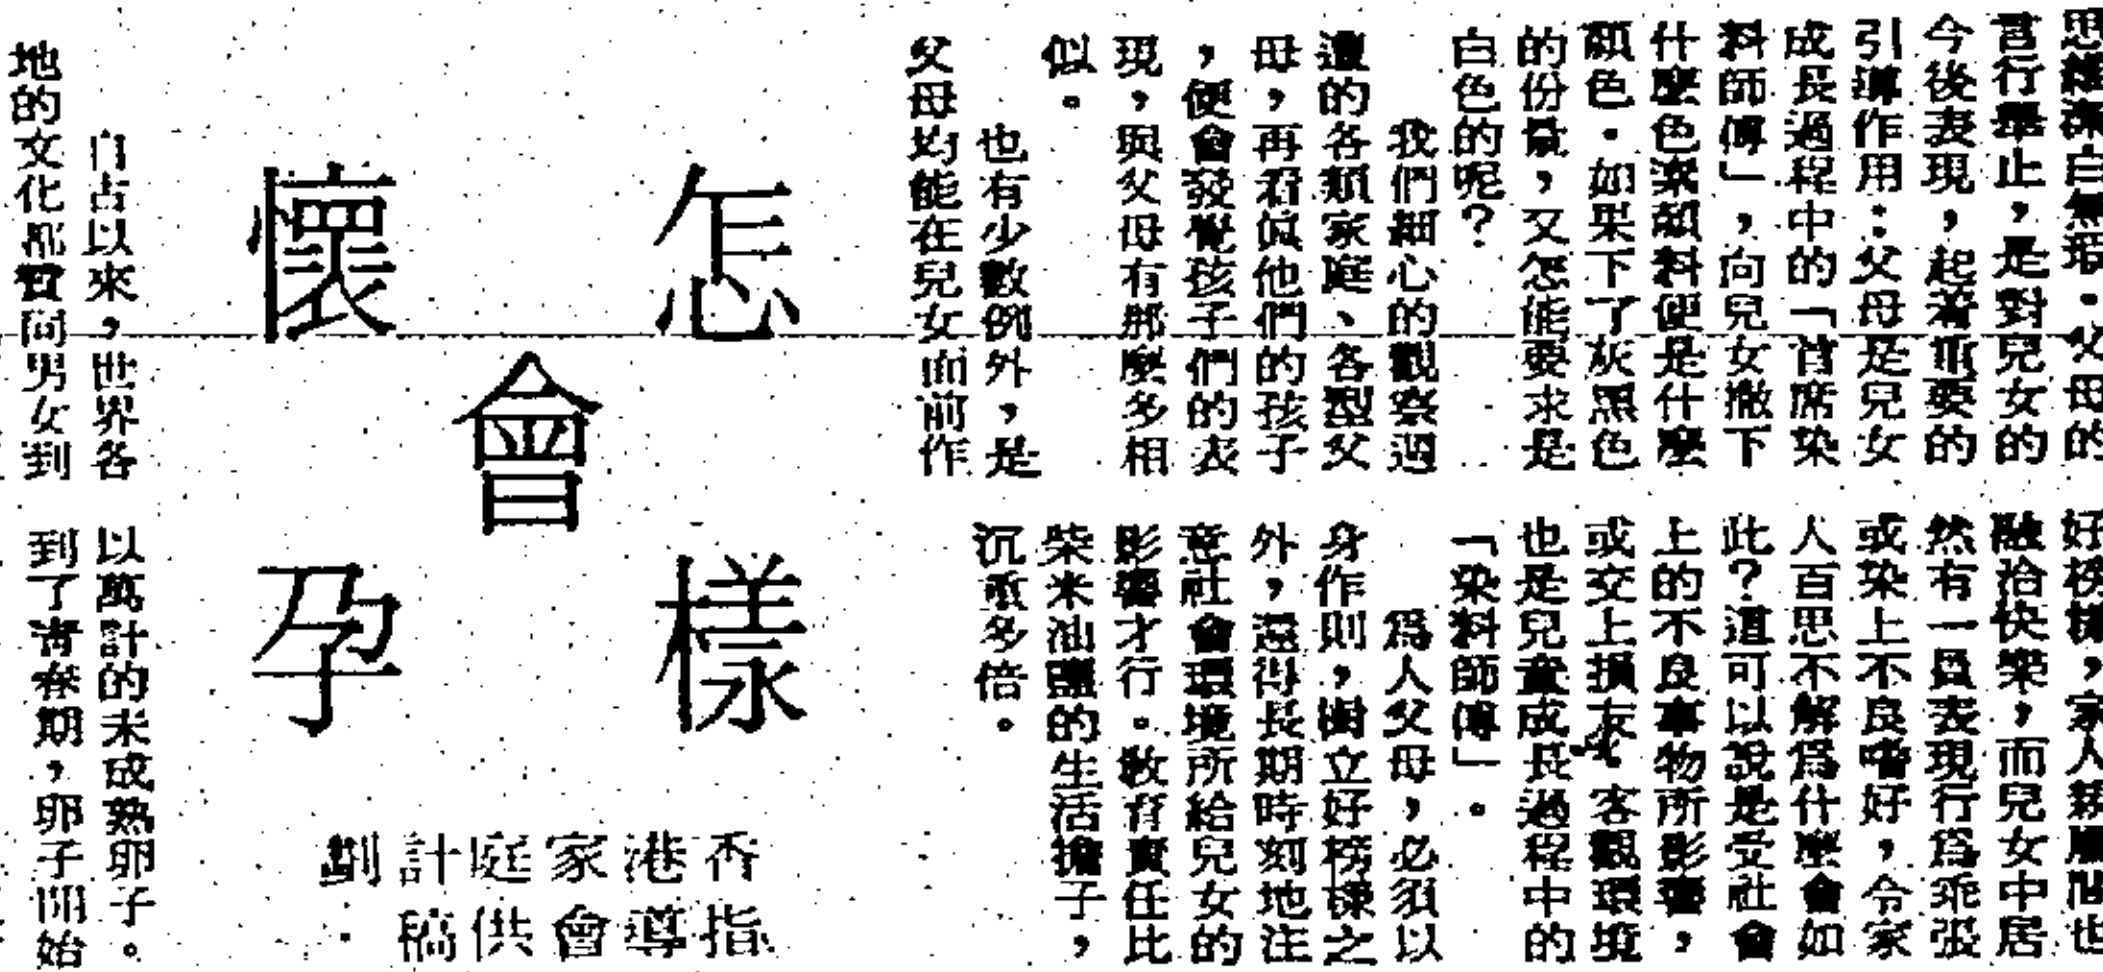 思維潔白無瑕。父母的
言行舉止，是對兒女的
今後表現，起着重要的
引導作用；父母是兒女
成長過程中的「首席染
料師傅」，向兒女撒下
什麼色素顏料便是什麼
顏色。如果下了灰黑色
的份量，又怎能要求是
白色的呢？
我們細心的觀察週
遭的各類家庭、各型父
母，再看倣他們的孩子
，便會發覺孩子們的表
現，與父母有那麼多相
似。
也有少數例外，是
父母均能在兒女面前作
好榜樣，家人親屬間也
融洽快樂，而兒女中居
然有一員表現行爲乖張
或染上不良嗜好，令家
人百思不解爲什麼會如
此？這可以說是受社會
上的不良事物所影響，
或交上損友。客觀環境
也是兒童成長過程中的
「染料師傅」。
爲人父母，必須以
身作則，樹立好榜樣之
外，還得長期時刻地注
意社會環境所給兒女的
影響才行。教育責任比
柴米油鹽的生活擔子，
沉重多倍。
怎樣
會
懷孕
香港家庭計劃
指導會供稿
自古以來，世界各
地的文化都賛同男女到
以萬計的未成熟卵子。
到了青春期，卵子開始